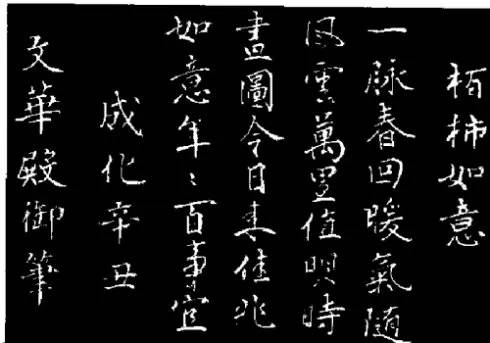 栢柿如意
一脉春回暖氣随
風雲萬里值明時
畫圖今日來佳兆
如意年〻百事宜
成化辛丑
文華殿御筆